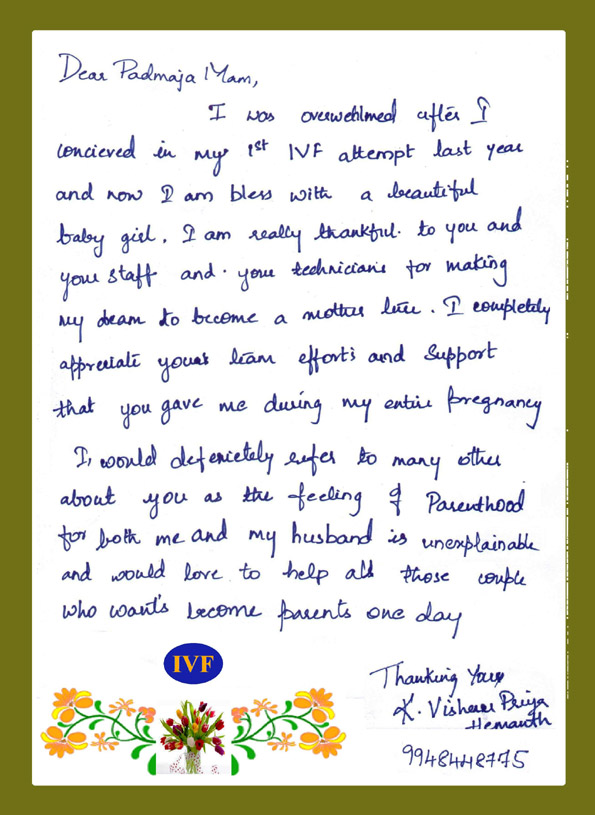 Dear Padmaja Mam,
I was overwehlmed after I
concieved in my 1st IVF attempt last year
and now I am bless with a beautiful
baby girl. I am really thankful. to you and
your staff and. your technician's for making
my dream to become a mother true. I completely
appreciate your's team effort's and support
that you gave me during my entire pregnancy
I, would defenietely refer to many other
about you as the feeling of Parenthood
for both me and my husband is unexplainable
and would love to help all those couple
who want's become parents one day
IVF
Thanking You,
K. Vishnu Priya
Hemanth
9948448775